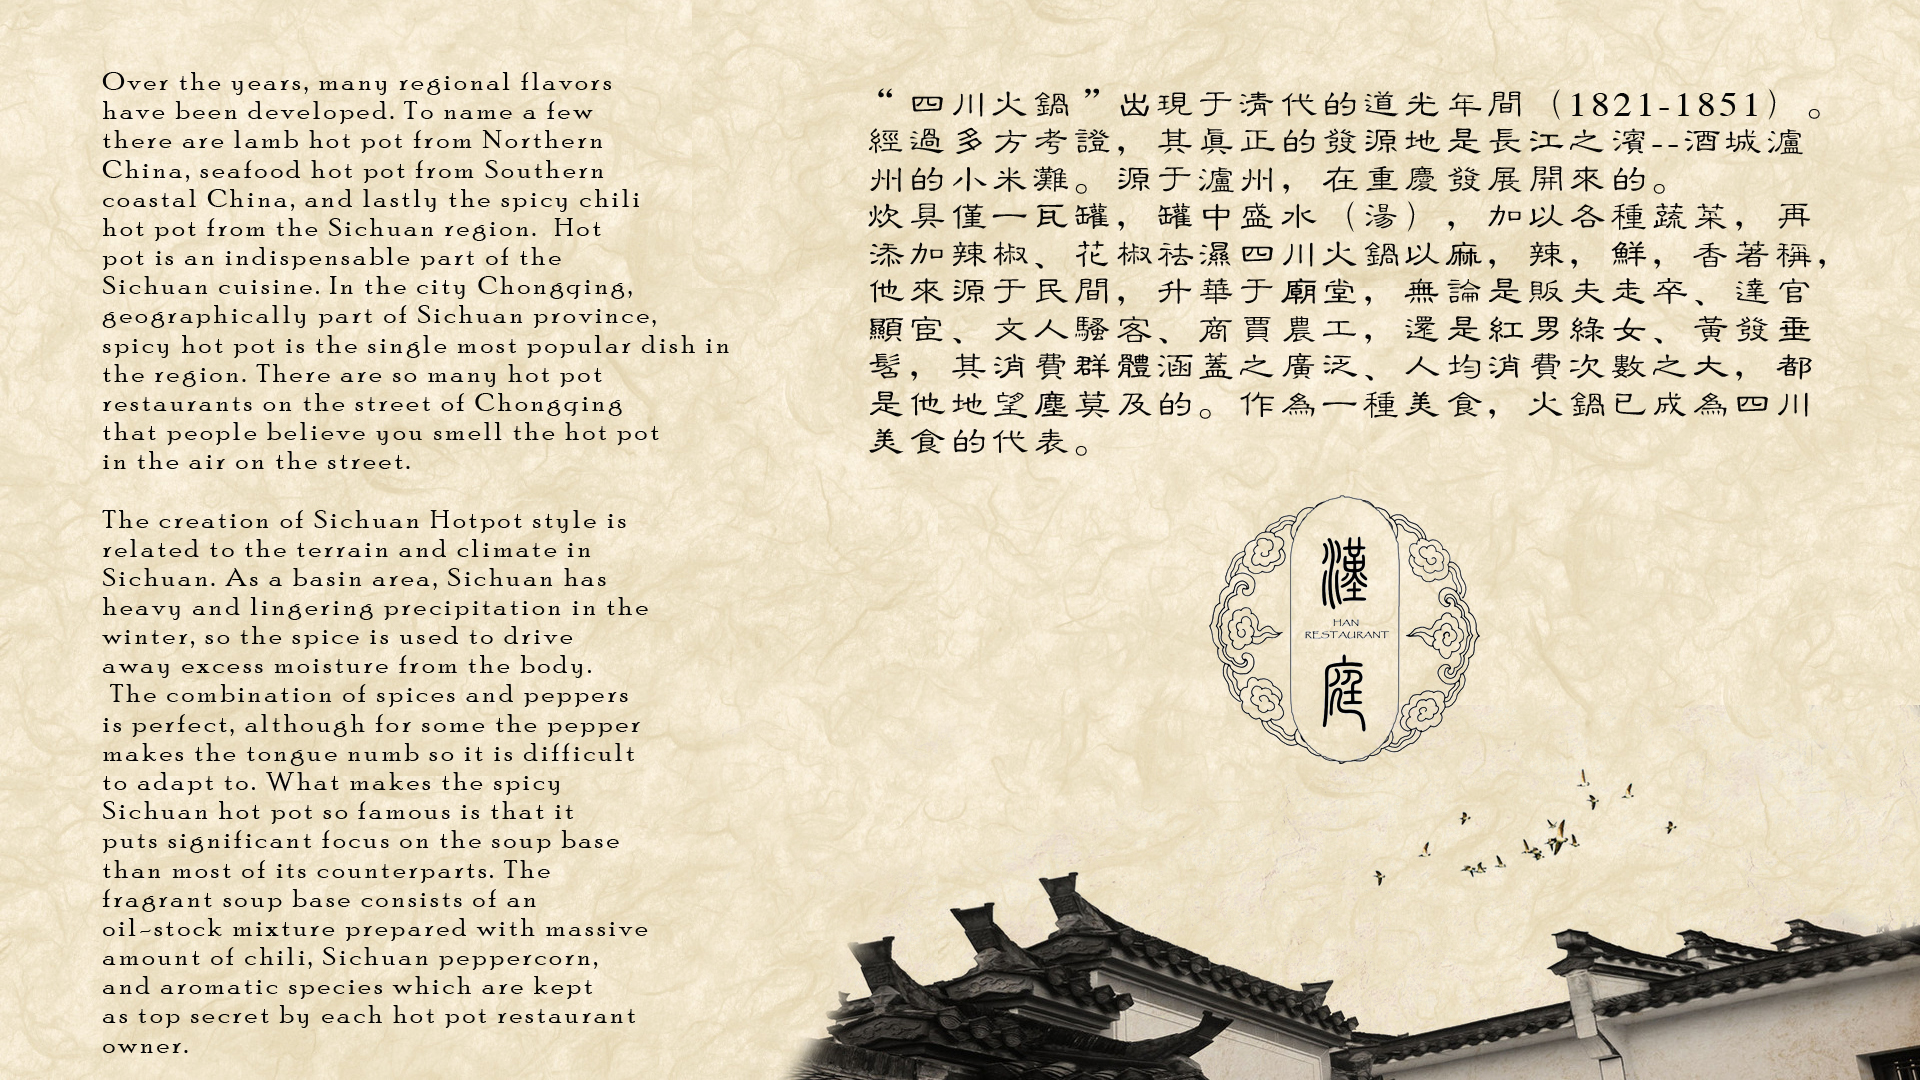 Over the years, many regional flavors
have been developed. To name a few
there are lamb hot pot from Northern
China, seafood hot pot from Southern
coastal China, and lastly the spicy chili
hot pot from the Sichuan region.  Hot
pot is an indispensable part of the
Sichuan cuisine. In the city Chongqing,
geographically part of Sichuan province,
spicy hot pot is the single most popular dish in
the region. There are so many hot pot
restaurants on the street of Chongqing
that people believe you smell the hot pot
in the air on the street.
The creation of Sichuan Hotpot style is
related to the terrain and climate in
Sichuan. As a basin area, Sichuan has
heavy and lingering precipitation in the
winter, so the spice is used to drive
away excess moisture from the body.
The combination of spices and peppers
is perfect, although for some the pepper
makes the tongue numb so it is difficult
to adapt to. What makes the spicy
Sichuan hot pot so famous is that it
puts significant focus on the soup base
than most of its counterparts. The
fragrant soup base consists of an
oil-stock mixture prepared with massive
amount of chili, Sichuan peppercorn,
and aromatic species which are kept
as top secret by each hot pot restaurant
owner.
“四川火鍋”出現于清代的道光年間（1821-1851）。
經過多方考證，其真正的發源地是長江之濱--酒城瀘
州的小米灘。源于瀘州，在重慶發展開來的。
炊具僅一瓦罐，罐中盛水（湯），加以各種蔬菜，再
添加辣椒、花椒祛濕四川火鍋以麻，辣，鮮，香著稱，
他來源于民間，升華于廟堂，無論是販夫走卒、達官
顯宦、文人騷客、商賈農工，還是紅男綠女、黃發垂
髫，其消費群體涵蓋之廣泛、人均消費次數之大，都
是他地望塵莫及的。作為一種美食，火鍋已成為四川
美食的代表。
漢
HAN
RESTAURANT
庭